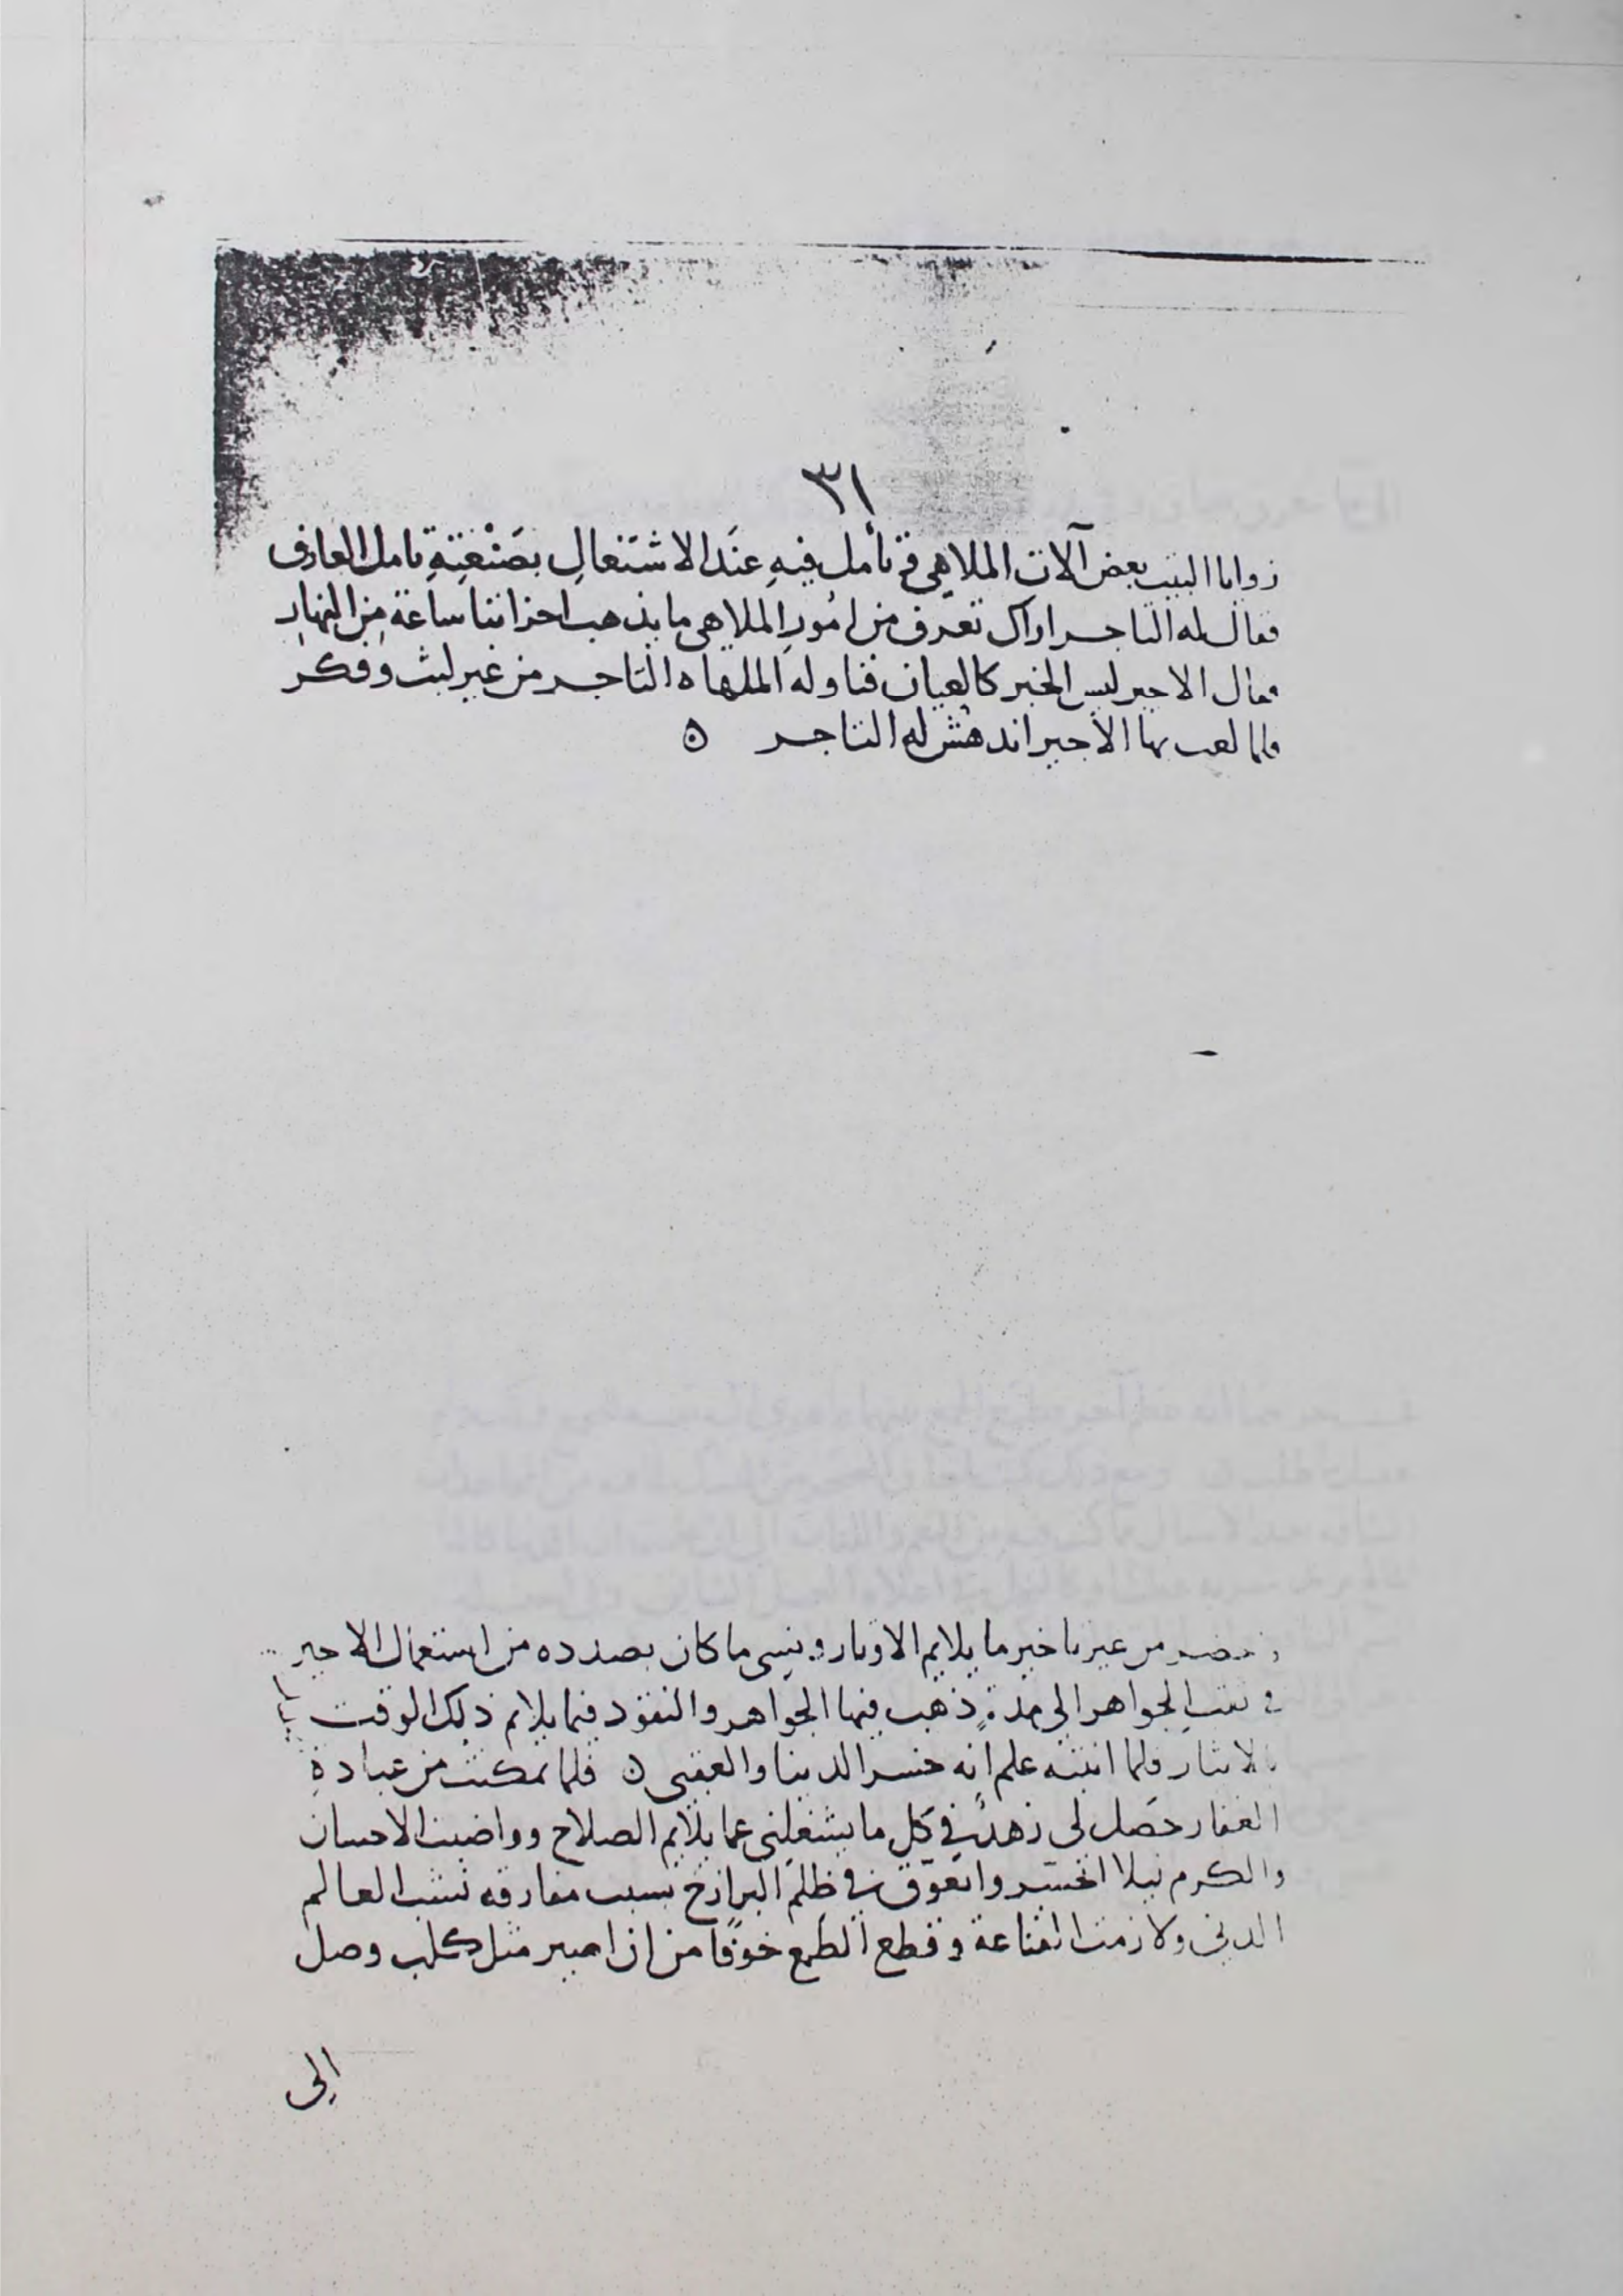 ٣١
زوايا البيت بعض آلات الملاهي فتأمل فيهِ عنَد الاشتغالِ بصَنْعتِهِ تامل العارف
فقال له التاجر اراك تعرف من امُورِ الملاهي ما يذهب احزاننا ساعة مِن النهارِ
فقال الاجير ليس الخبر كالعيان فناوله الملهاه التاجر من غير لبث وفكر
فلما لعب بها الاجير اندهش له التاجر ه
وحضر من غير تاخير ما يلايم الاوتار ونسى ما كان بصدده من استعمال الاجير
في ثقب الجواهر الى مدةٍ ذهب فيها الجواهر والنقود فيما يلايم ذلك الوقت
بالايثار ولما انتبه علم انه خسر الدينا والعقبى ه فلما تمكنت من عبادة
الغفار حصَل لى زهدٌ في كل ما يشغلنى عما يلايم الصلاح وواضبت الاحسان
والكرم ليلا اتحسّر واتعوّق في ظلم البرازخ بسبب مفارقه نسب العالم
الدنى ولازمت القناعة وقطع الطمع خوفًا من ان اصير مثل كلب وصل
الى